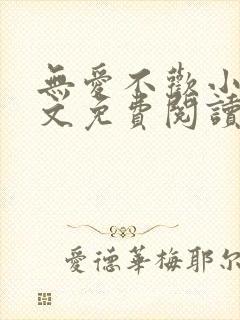 無愛不歡小
文免費閱讀
愛德華梅耶尔